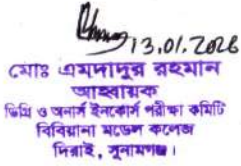 13.01.2026
মোঃ এমদাদুর রহমান
আহ্বায়ক
ডিগ্রি ও অনার্স ইনকোর্স পরীক্ষা কমিটি
বিবিয়ানা মডেল কলেজ
দিরাই, সুনামগঞ্জ।